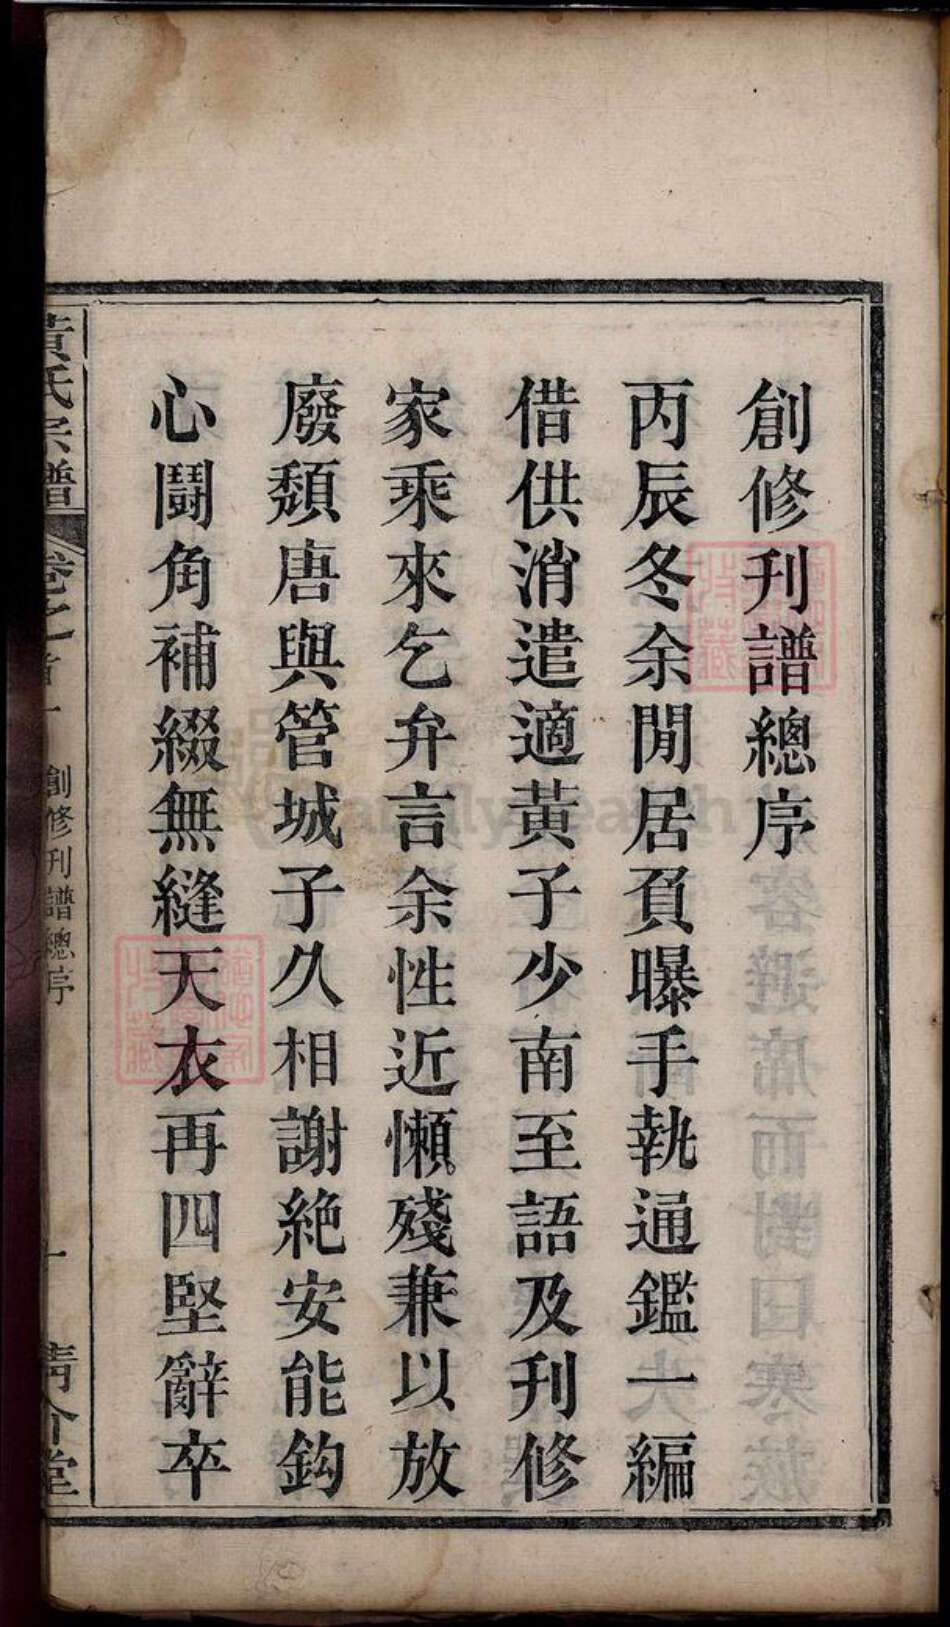 創修刊譜總序
丙辰冬余閒居負曝手執通鑑一編
借供消遣適黃子少南至語及刊修
家乘來乞弁言余性近懶殘兼以放
廢頹唐與管城子久相謝絶安能鈎
心鬪角補綴無縫天衣再四堅辭卒
黃氏宗譜 卷之首一 創修刊譜總序 一 清介堂